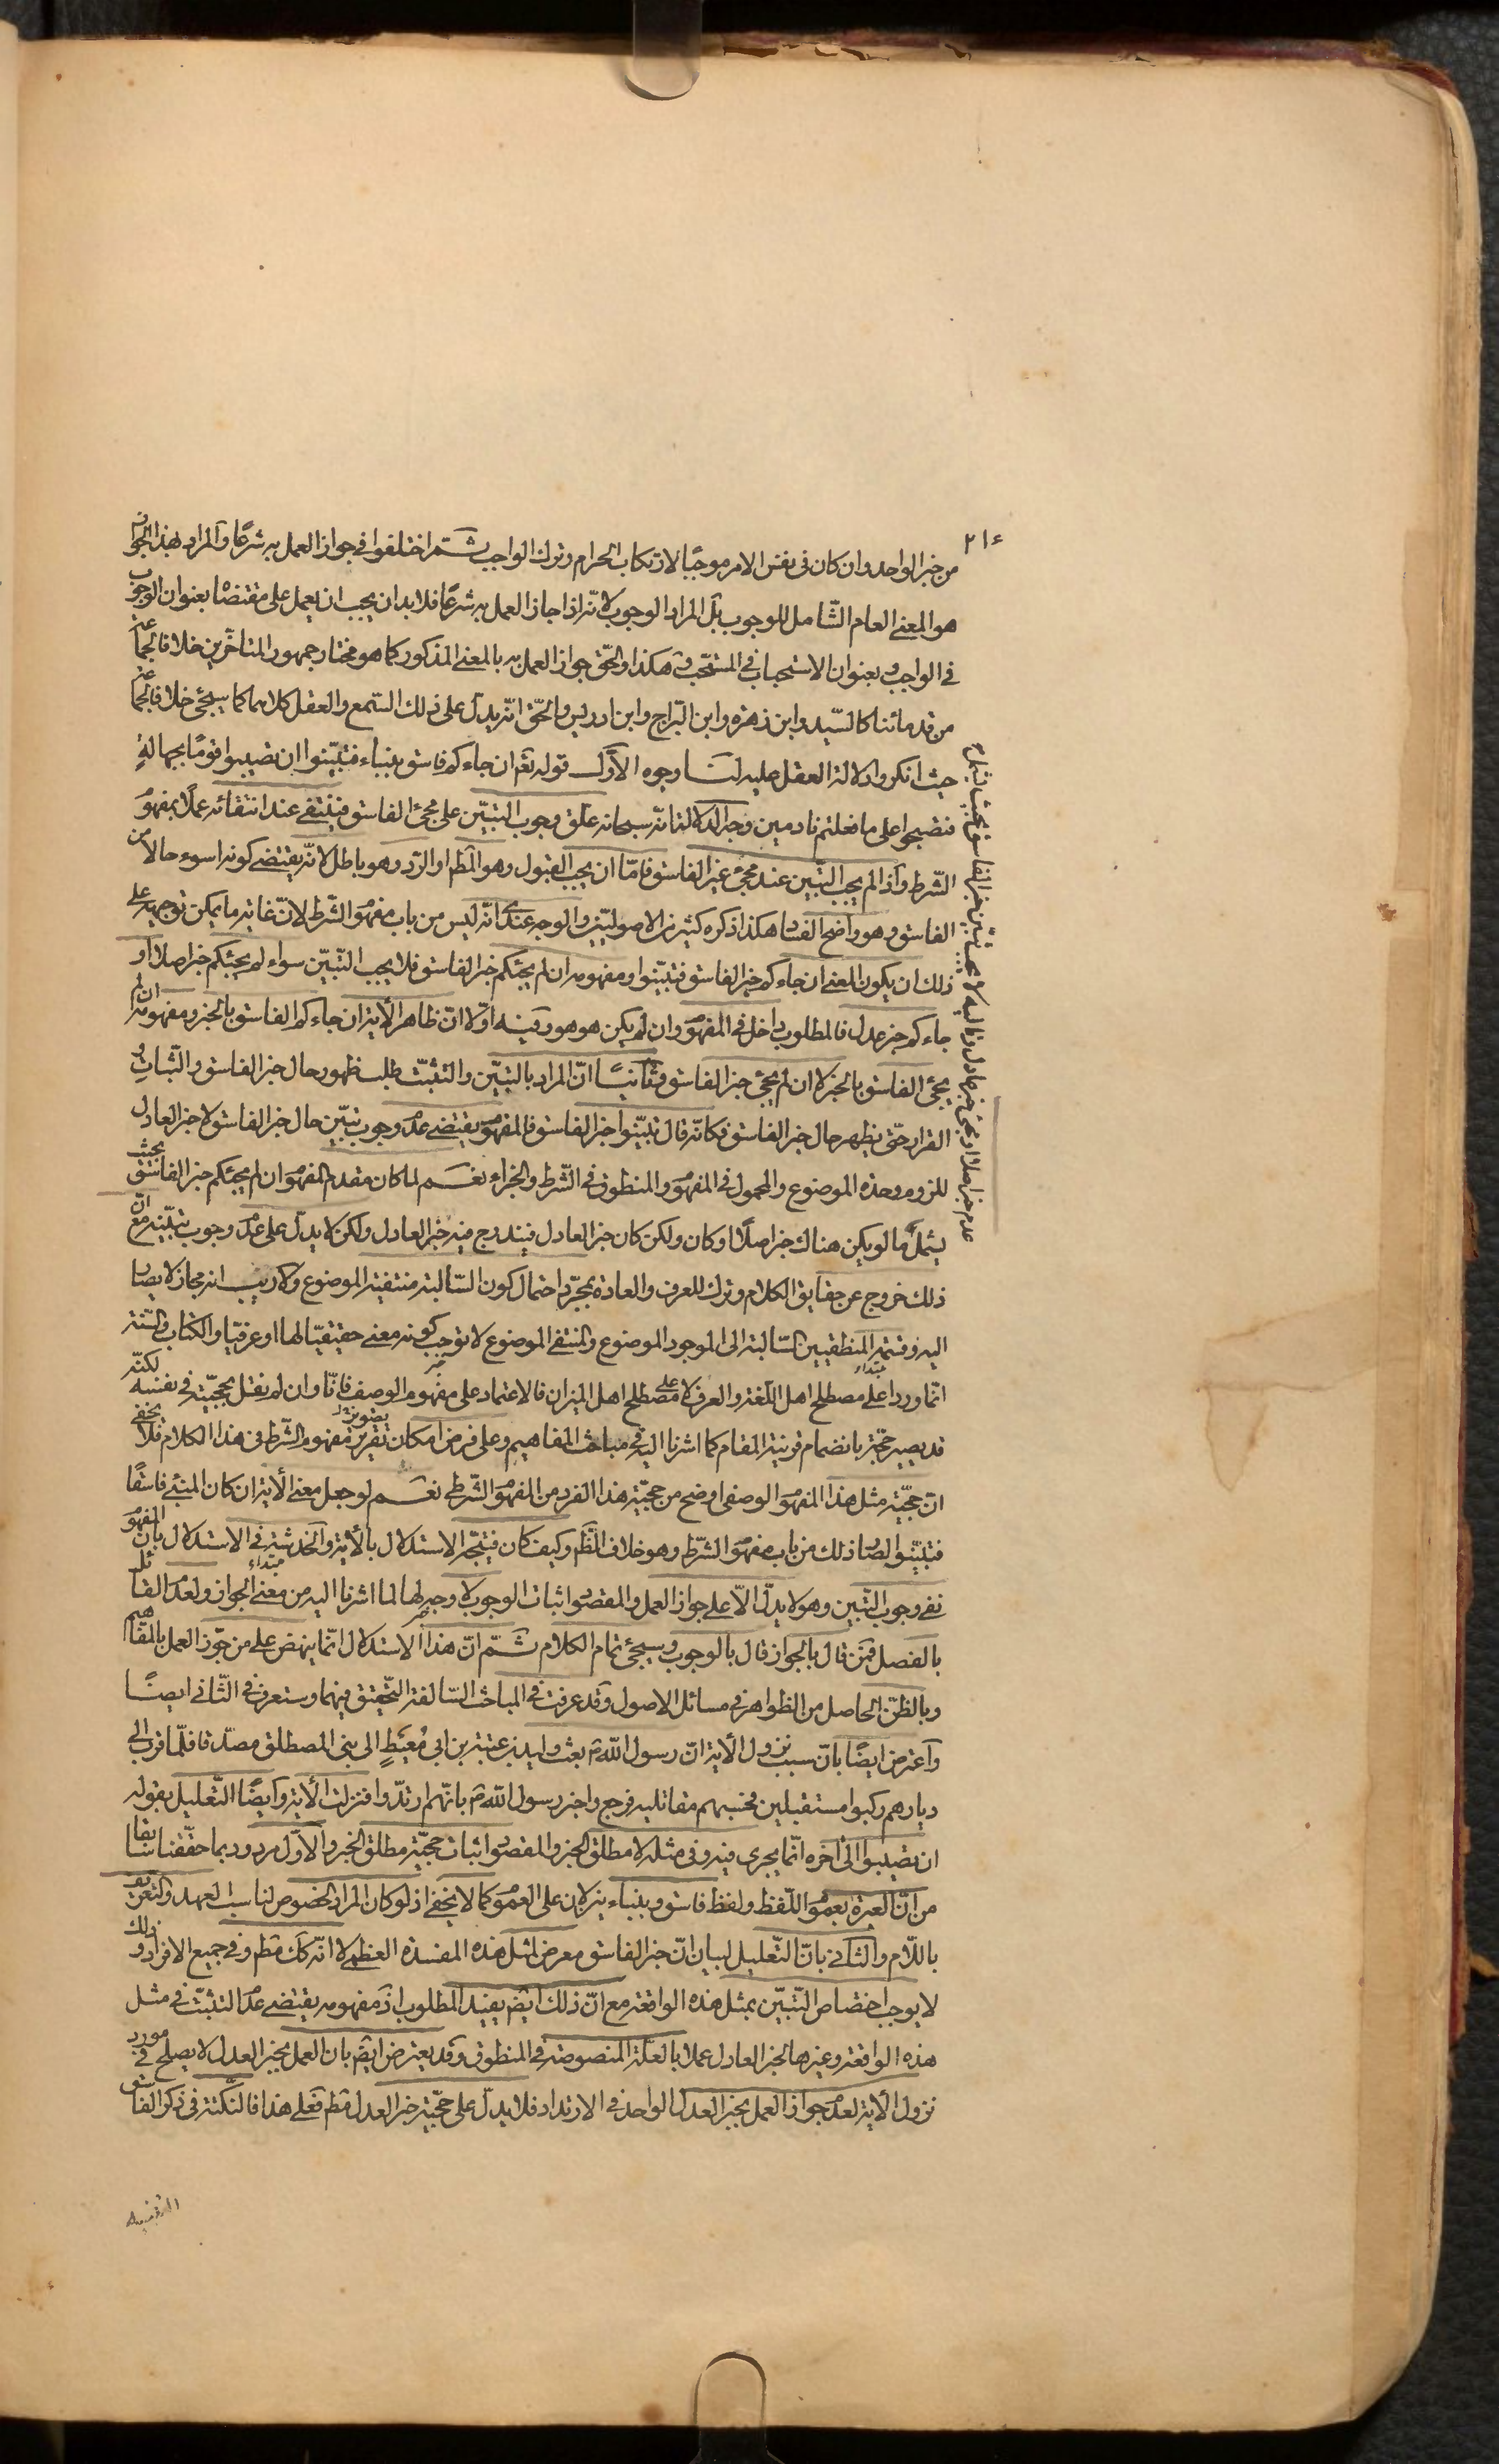 ٢١٤
من خبر الواحد وان كان فى نفس الامر موجبًا لارتكاب الحرام وترك الواجب ثــم اختلفوا فى جواز العمل به شرعًا والمراد بهذا الجواز
هو المعنى العام الشّامل للوجوب بل المراد الوجوب لانّه اذا جاز العمل به شرعًا فلا بد ان يجب ان يعمل على مقتضاه بعنوان الوجوب
فى الواجب وبعنوان الاستحباب فى المستحب وهكذا والحق جواز العمل به بالمعنى المذكور كما هو مختار جمهور المتاخّرين خلافا لجماعة
من قدمائنا كالسّيد وابن زهره وابن البّراج وابن ادريس والحّق انّه يدل على ذلك السّمع والعقل كلاهما كما سيجئ خلافا لجماعة
حيث انكروا دلالة العقل عليه لنــا وجوه الاوّل قوله تعۤ ان جاءكم فاسق بنباء فتبيّنوا ان تصيبوا قومًا بجهالةٍ
فتصبحوا على ما فعلتم نادمين وجه الدلالة انّه سبحانه علّق وجوب التبيّن على مجئ الفاسق فينتفى عند انتفائه عملًا بمفهوم
الشّرط واذا لم يجب التبّين عند مجئ غير الفاسق فامّا ان يجب القبول وهو المطۤ او الردّ وهو باطل لانّه يقتضى كونه اسوء حالا من
الفاسق وهو واضح الفساد هكذا ذكره كثير من الاصوليّين والوجه عندى انّه ليس من باب مفهوم الشّرط لانّ غاية ما يمكن توجيهه على
ذلك ان يكون المعنى ان جاءكم خبر الفاسق فتبيّنوا ومفهومه ان لم يجئكم خبر الفاسق فلا يجب التّبيّن سواء لم يجئكم خبر اصلا او
جاءكم خبر عدل فالمطلوب داخل فى المفهوم وان لم يكن هو هو وفيــه اوّلا انّ ظاهر الآية ان جاءكم الفاسق بالخبر ومفهومه ان لم
يجئ الفاسق بالخبر لا ان لم يجئ خبر الفاسق وثانيــًا انّ المراد بالتبيّن والتثبّت طلب ظهور حال خبر الفاسق والثّبات و
القرار حتّى يظهر حال خبر الفاسق فكانّه قال تبيّنوا خبر الفاسق فالمفهوم يقتضى عدم وجوب تبيّن حال خبر الفاسق لا خبر العادل
للزوم وحدة الموضوع والمحمول فى المفهوم والمنطوق فى الشّرط والجزاء نعــم لما كان مقدم المفهوم ان لم يجئكم خبر الفاسق بحيث
يشمل ما لو يكن هناك خبر اصلًا او كان ولكن كان خبر العادل فيندرج فيه خبر العادل ولكن لا يدلّ على عدم وجوب تبيّنه مع انّ
ذلك خروج عن حقايق الكلام وترك للعرف والعادة بمجرّد احتمال كون السّالبة منتفية الموضوع ولا ريب انه مجاز لا يصار
اليه وقسمة المنطقيين السّالبة الى الموجود الموضوع والمنتفى الموضوع لا توجب كونه معنى حقيقيّا لها او عرفيّا والكتاب والسّنة
انّما وردا على مصطلح اهل اللّغة والعرف لا على مصطلح اهل الميزان فالاعتماد على مفهوم الوصف فانّا وان لم نقل بحجّيّته فى نفسه لكنّه
قد يصير حجّة بانضمام قرينة المقام كما اشرنا اليه فى مباحث المفاهيم وعلى فرض امكان تقرير مفهوم الشّرط فى هذا الكلام فلا يخفى
انّ حجّيّة مثل هذا المفهوم الوصفى اوضح من حجّيّة هذا الفرد من المفهوم الشّرطى نعــم لو جعل معنى الآية ان كان المنبئ فاسقًا
فتبيّنوا لصار ذلك من باب مفهوم الشّرط وهو خلاف الظّۤ وكيف كان فيتّجه الاستدلال بالآية والخدشة فى الاستدلال بانّ المفهوم
نفى وجوب التّبين وهو لا يدلّ الّا على جواز العمل والمقصود اثبات الوجوب لا وجه لها لما اشرنا اليه من معنى الجواز ولعدم القائل
بالفصل فمن قال بالجواز قال بالوجوب وسيجئ تمام الكلام ثــمّ انّ هذا الاستدلال انّما ينهض على من جوّز العمل بالمفاهيم
وبالظّن الحاصل من الظواهر فى مسائل الاصول وقد عرفت فى المباحث السّالفة التّحقيق فيهما وستعرف فى الثّانى ايضــًا
واعترض ايضًا بانّ سبب نزول الآية انّ رسول اللّه صۤ بعث وليد بن عتبة بن ابى مُعَيطٍ الى بنى المصطلق مصدّقا فلمّا قرب الى
ديارهم ركبوا مستقبلين فحسبهم مقاتليه فرجع واخبر رسول اللّه صۤ بانّهم ارتدّوا فنزلت الآية وايضًا التّعليل بقوله
ان تصيبوا الى آخره انّما يجرى فيه وفى مثله لا مطلق الخبر والمقصود اثبات حجيّة مطلق الخبر والاوّل مردود بما حقّقنا سابقا
من انّ العبرة بعموم اللّفظ ولفظ فاسق وبنباء ينزلان على العموم كما لا يخفى اذ لو كان المراد الخصوص لناسب العهد والتعريف
باللّام والثّانى بانّ التّعليل لبيان انّ خبر الفاسق معرض لمثل هذه المفسدة العظمى لا انّه كك مطۤ وفى جميع الافراد وذلك
لا يوجب اختصاص التّبيّن بمثل هذه الواقعة مع انّ ذلك ايضۤ يفيد المطلوب اذ مفهومه يقتضى عدم التثبّت فى مثل
هذه الواقعة وغيرها لخبر العادل عملا بالعلّة المنصوصة فى المنطوق وقد يعترض ايضۤ بان العمل بخبر العدل لا يصلح فى مورد
نزول الآية لعدم جواز العمل بخبر العدل الواحد فى الارتداد فلا يدلّ على حجيّة خبر العدل مطۤ فعلى هذا فالنّكتة فى ذكر الفاسق